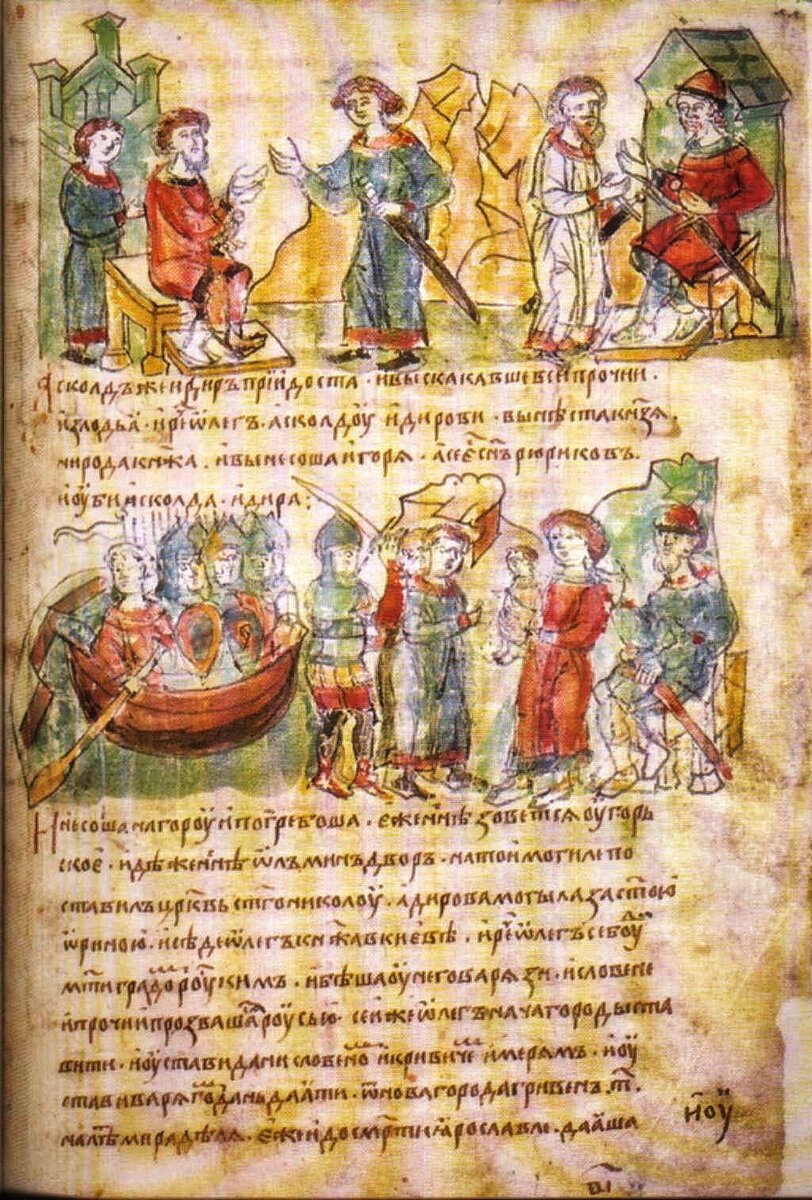 Асколдъ же и Диръ прїидоста · и выскакавше вси прочии ·
изъ лодьꙗ · и рⷱ҇е Ѡлегъ · Асколдоу и Дирови · вы нѣста кнѧзѧ ·
ни рода кнѧжа · и вынесоша Игорѧ · а се єⷭ҇ сн҃ъ Рюриковъ ·
и оубиша Асколда · и Дира :
И несоша на гороу и погребоша · єже нн҃ѣ зоветсѧ Оугорь
скоє · идѣже нн҃ѣ Ѡлъминъ дворъ · на тои могиле по
ставилъ црк҃вь ст҃го Николоу · а Дирова могыла за ст҃ою
Ѡриною · и сѣде Ѡлегъ кнѧжа в Киевѣ · и рⷱ҇е Ѡлегъ се боуⷣ
мт҃и градоⷨ роуⷭ҇кимъ · и бѣша оу него варѧзи · и словене
и прочи прозвашаⷭ҇ роусью · сеи же Ѡлегъ нача городы ста
вити · и оустави дани словеноⷨ и кривичеⷨ и мерѧмъ · и оу
стави варѧгоⷨ дань даꙗти · ѿ Новагорода гривенъ · т҃ ·
на лѣⷮ мира дѣлѧ · єже и до смр҃ти Ꙗрославлѧ даꙗша
и оу